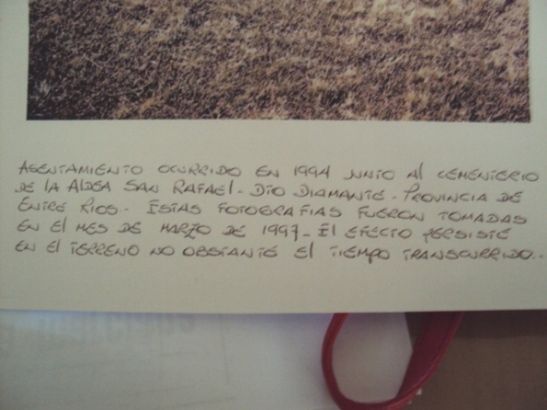 ASENTAMIENTO OCURRIDO EN 1994 JUNTO Al CEMENTERIO
DE lA AlDEA SAN RAFAEl - DTO DIAMANTE - PROVINCIA DE
ENTRE RIOS - ESTAS FOTOGRAFIAS FUERON TOMADAS
EN El MES DE MARZO DE 1997 - El EFECTO PERSISTE
EN El TERRENO NO OBSTANTE El TIEMPO TRANSCURRIDO.-